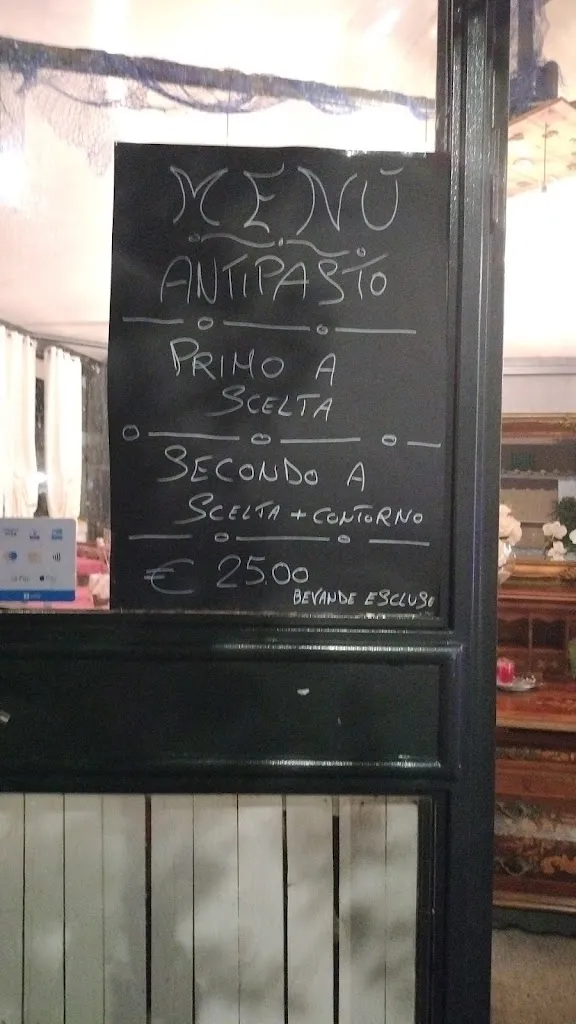 MENÙ
ANTIPASTO
PRIMO A
SCELTA
SECONDO A
SCELTA + CONTORNO
€ 25.00
BEVANDE ESCLUSO